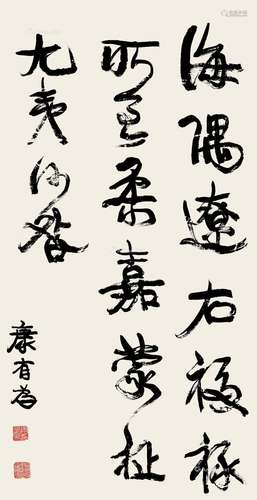 海隅遼右福祿
所至柔嘉蒙祉
九夷何咎
康有為